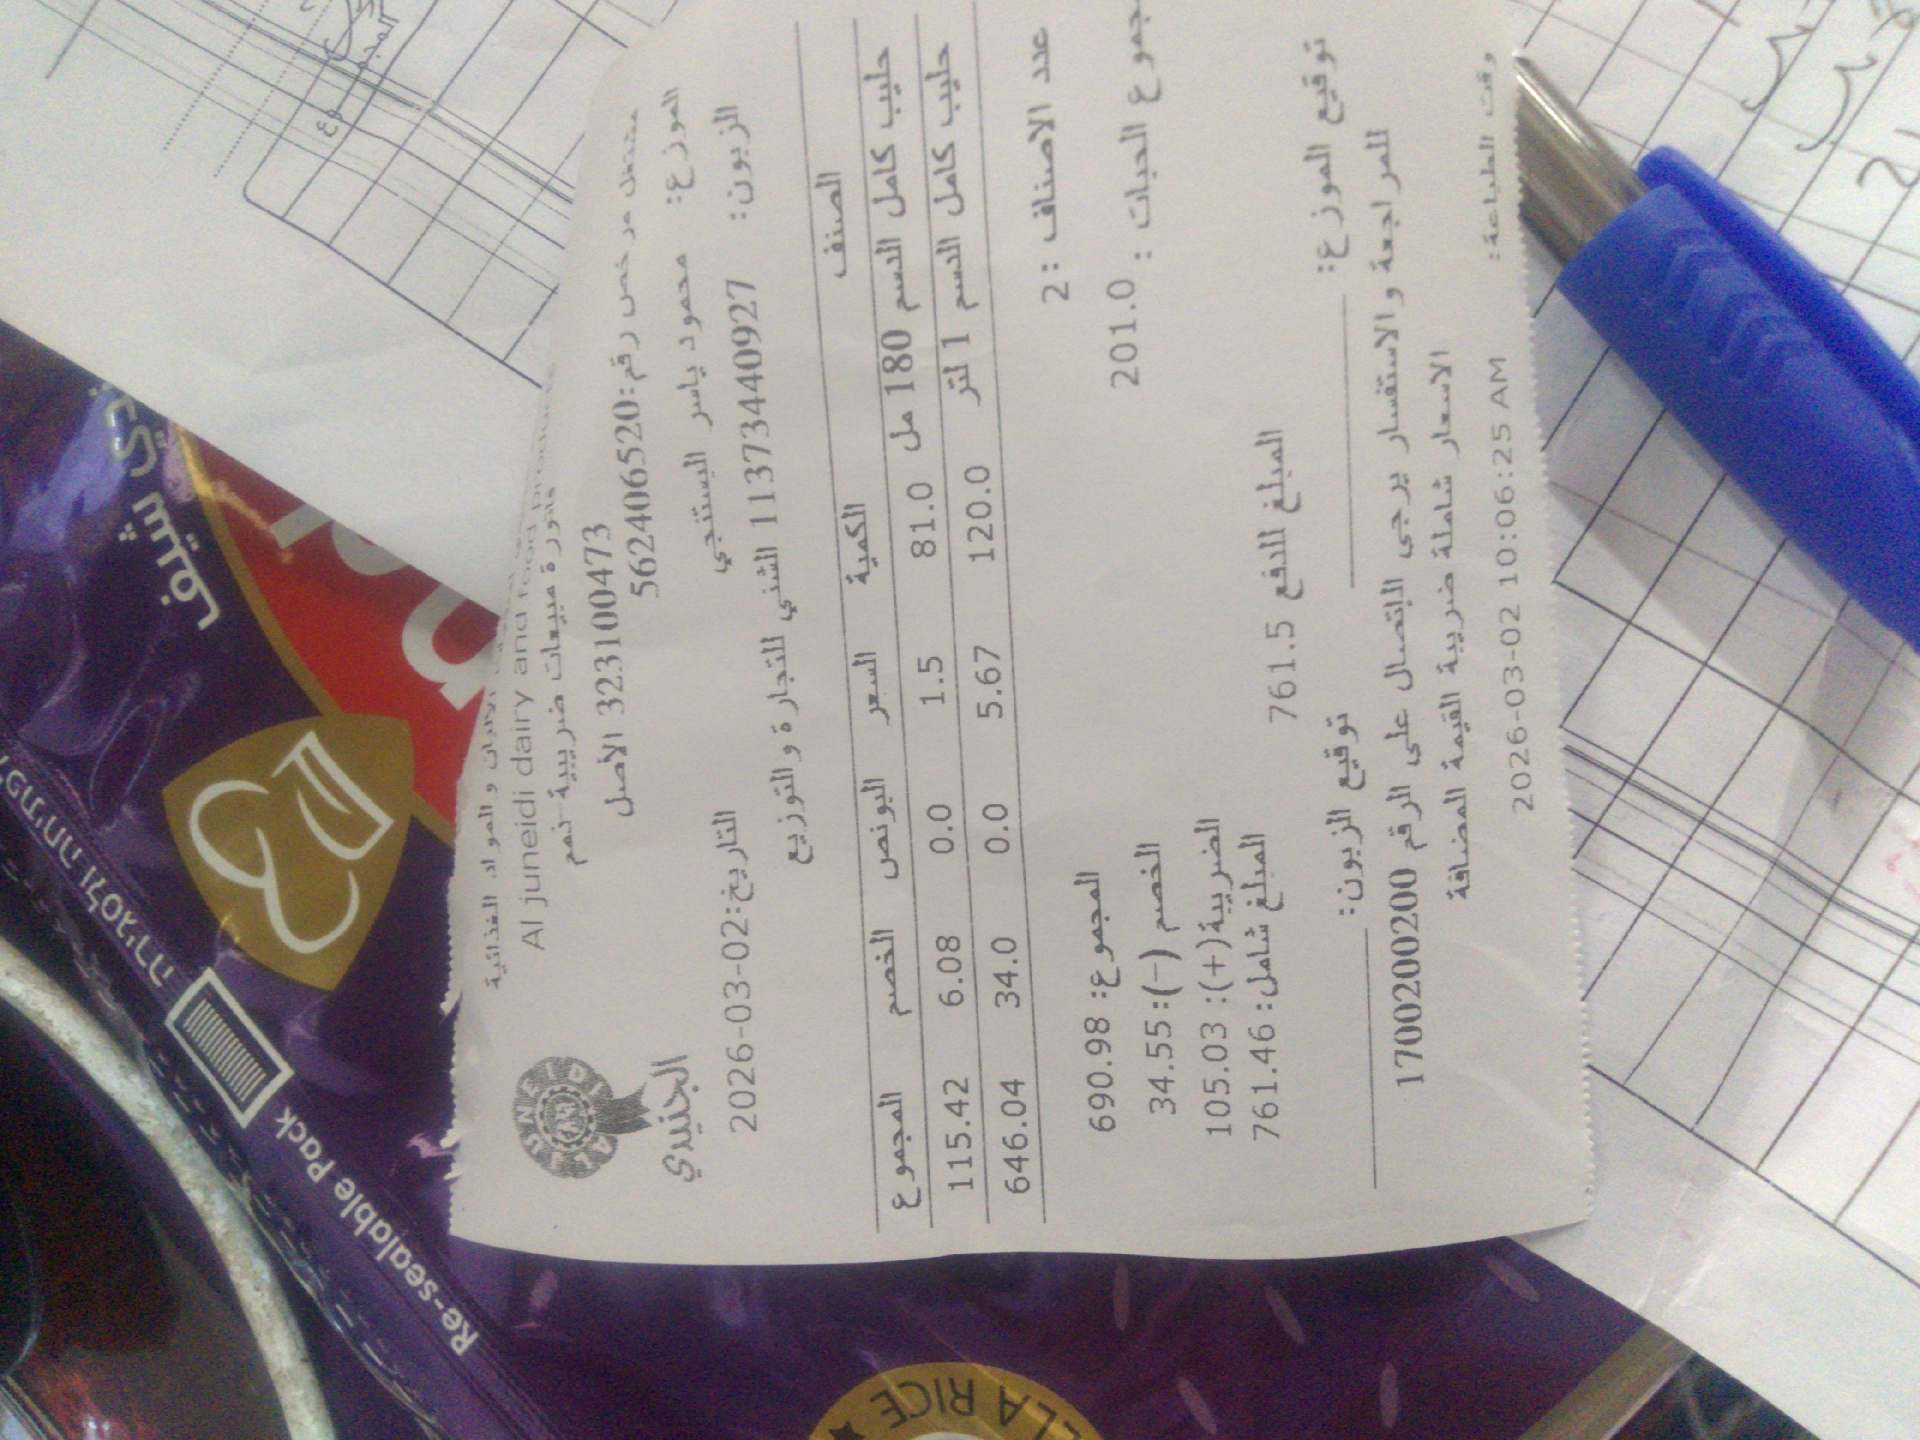 الالبان والمواد الغذائية
Al juneidi dairy and food products
فاتورة مبيعات ضريبية-ذمم
3231004​73 الاصل
مشتغل مرخص رقم:562406520
AL JUNEIDI
الجنيدي
الموزع: محمود ياسر البستنجي
التاريخ:2026-03-02
الزبون: 11373440927 الشني للتجارة والتوزيع
الصنف الكمية السعر البونص الخصم المجموع
حليب كامل الدسم 180 مل 81.0 1.5 0.0 6.08 115.42
حليب كامل الدسم 1 لتر 120.0 5.67 0.0 34.0 646.04
عدد الاصناف :2
المجموع: 690.98
جموع الحبات : 201.0
الخصم (-): 34.55
الضريبة(+): 105.03
المبلغ شامل: 761.46
المبلغ للدفع 761.5
توقيع الموزع:
توقيع الزبون:
للمراجعة والاستفسار يرجى الإتصال على الرقم 1700200200
الاسعار شاملة ضريبة القيمة المضافة
وقت الطباعة: 2026-03-02 10:06:25 AM
Re-sealable Pack
LLA RICE